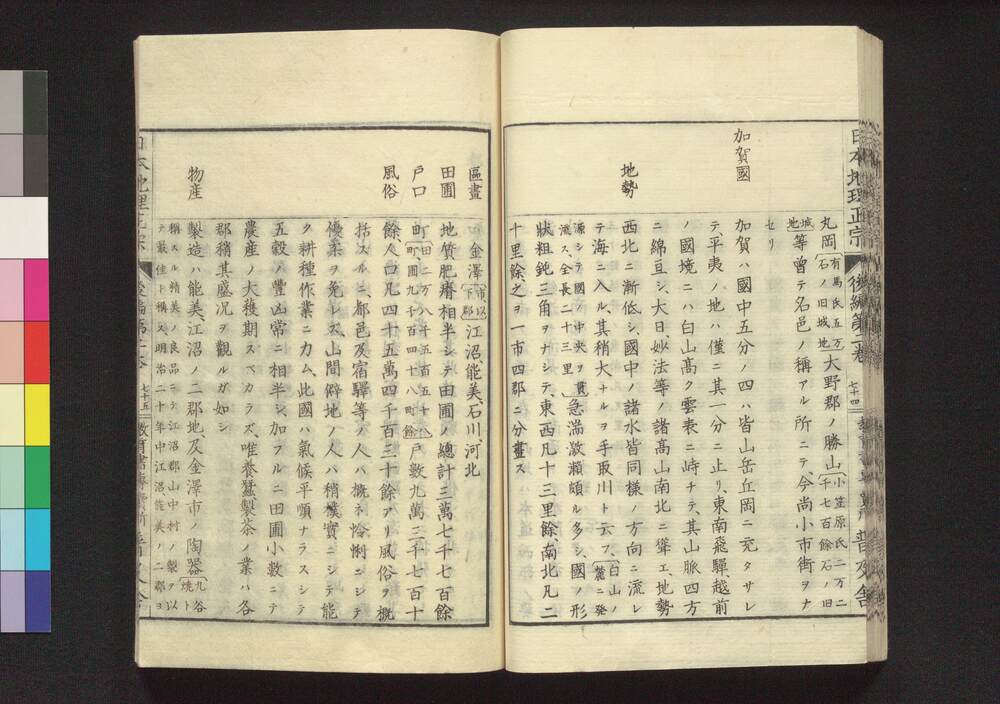 日本地理正宗
後編第二卷
七十四
普及舍
丸岡(有馬氏五万石ノ旧城地)大野郡ノ勝山(小笠原氏二万二千七百餘石ノ旧
城地)等曾テ名邑ノ稱アル所ニテ、今尚小市街ヲナ
セリ
加賀國
加賀ハ國中五分ノ四ハ皆山岳丘岡ニ充タサレ
テ、平夷ノ地ハ僅ニ其一分ニ止リ、東南飛驒、越前
ノ國境ニハ白山高ク雲表ニ峙チテ、其山脈四方
ニ綿亘シ、大日妙法等ノ諸高山南北ニ聳エ、地勢
地勢
西北ニ漸低シ、國中ノ諸水皆同様ノ方向ニ流レ
テ海ニ入ル、其稍大ナルヲ手取川ト云フ、(白山ノ麓ニ發
源シテ國ノ中央ヲ貫流ス、全長二十三里)急湍激瀬頗ル多シ、國ノ形
狀粗鈍三角ヲナシテ、東西凡十三里餘南北凡二
十里餘、之ヲ一市四郡ニ分畫ス
區畫
金澤(市以下郡)江沼、能美、石川、河北
田圃
地質肥瘠相半シテ田圃ノ總計三萬七千七百餘
戸口
町(田二万八千五百五十八町、圃九千百四十八町餘)戸數九萬三千七百十
風俗
餘、人口凡四十五萬四千百三十餘アリ風俗ヲ概
括スルニ、都邑及宿驛等ノ人ハ概ネ怜悧ニシテ
優柔ヲ免レズ、山間僻地ノ人ハ稍樸實ニシテ能
ク耕種作業ニカム、此國ハ氣候平順ナラスシテ
五穀ノ豊凶常ニ相半シ、加フルニ田圃小數ニテ
農産ノ大穫期スベカラズ、唯養蠶製茶ノ業ハ各
郡稍其盛況ヲ觀ルガ如シ
物産
製造ハ能美、江沼ノ二郡地、及金澤市ノ陶器(九谷焼ト
稱スル精美ノ良品ニテ、江沼郡山中村ノ製ヲ以
テ最佳ト稱ス、明治二十年中江沼、能美ノ二郡ヨ
日本地理正宗
後編第二卷
七十五